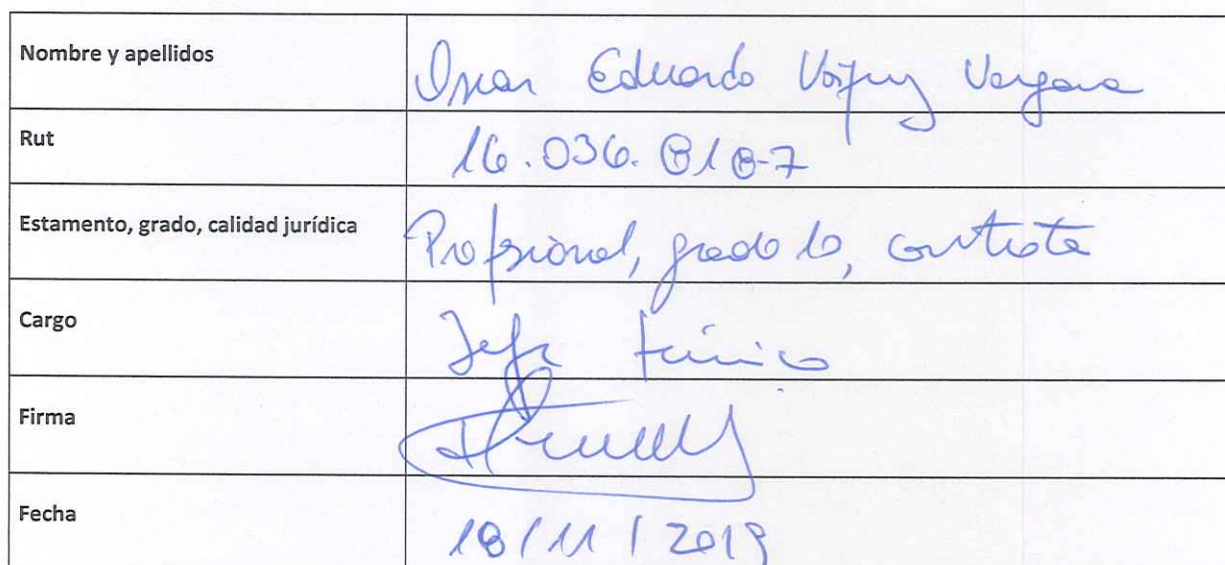 Nombre y apellidos
Oscar Eduardo Vergara
Rut
16.036.818-7
Estamento, grado, calidad jurídica
Profesional, grado 10, contrata
Cargo
Jefe técnico
Firma
Fecha
18/11/2019